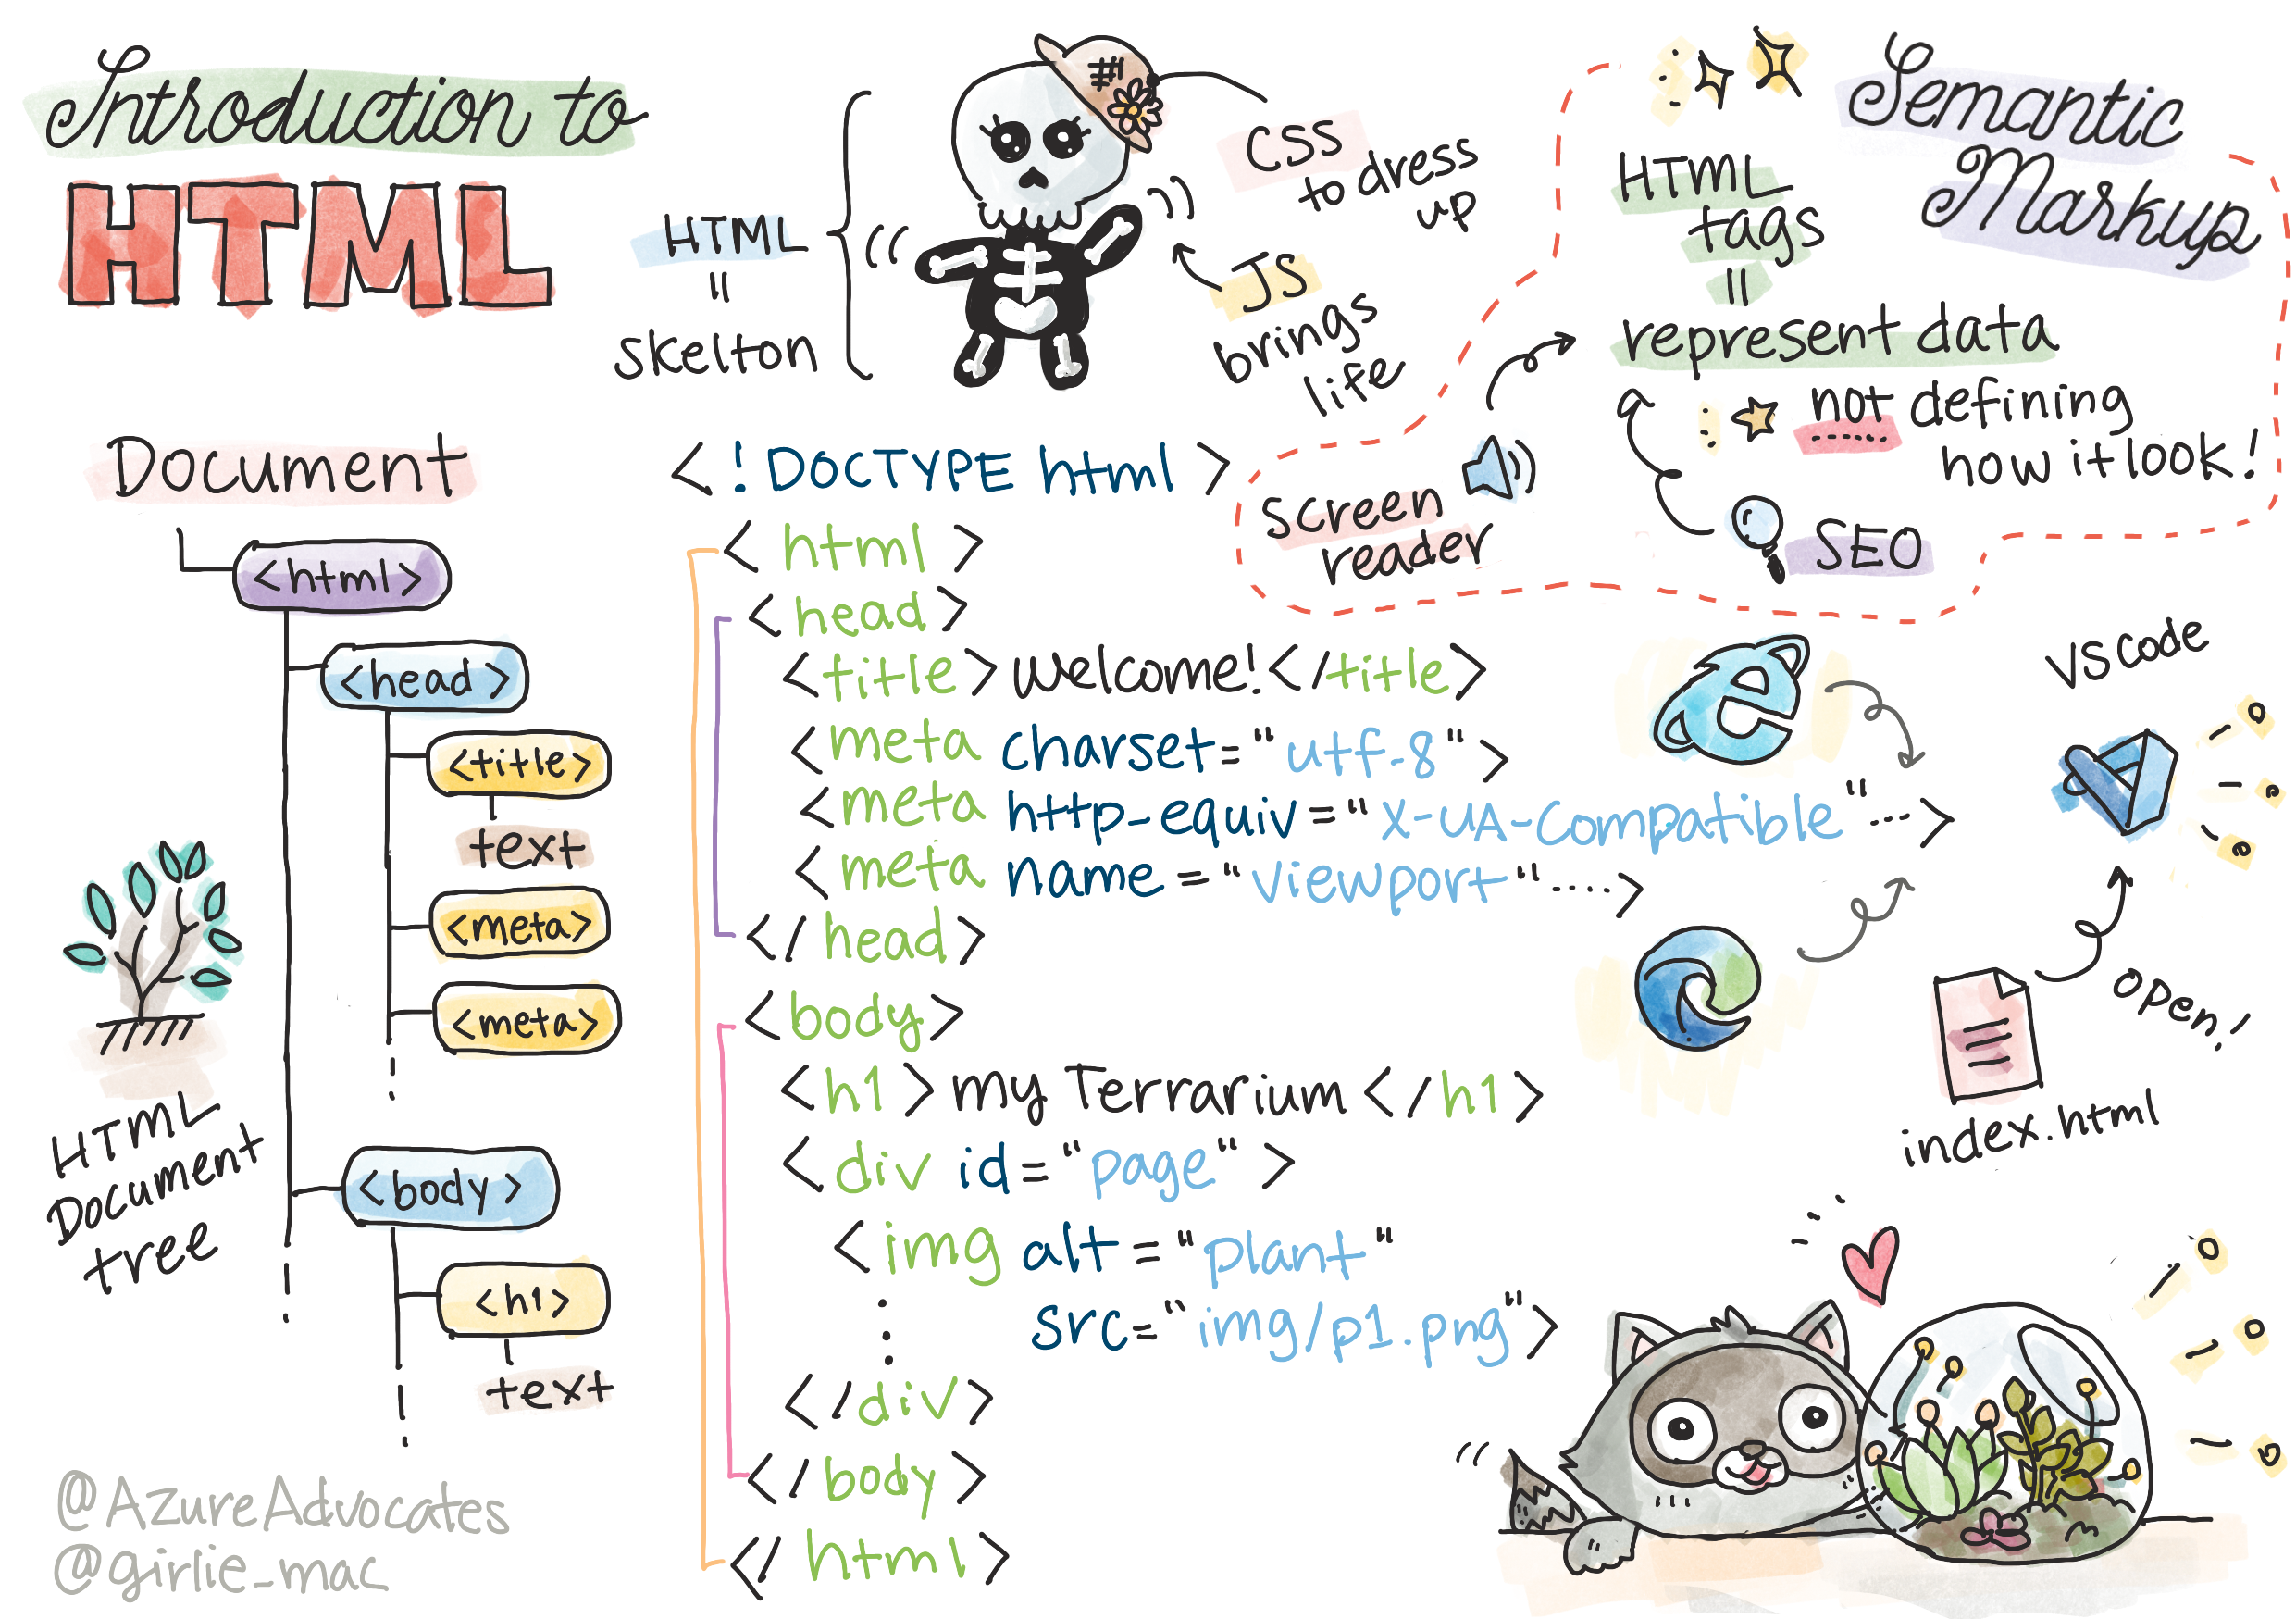 Introduction to
HTML
HTML
=
skelton
CSS
to dress
up
JS
brings
life
Semantic
Markup
HTML
tags
=
represent data
not defining
how it look!
screen
reader
SEO
Document
<html>
<head>
<title>
text
<meta>
<meta>
<body>
<h1>
text
HTML
Document
tree
<!DOCTYPE html>
<html>
<head>
<title>Welcome!</title>
<meta charset="utf-8">
<meta http-equiv="X-UA-Compatible"...>
<meta name="viewport"....>
</head>
<body>
<h1>my Terrarium</h1>
<div id="page">
<img alt="plant"
src="img/p1.png">
</div>
</body>
</html>
VScode
open!
index.html
@AzureAdvocates
@girlie_mac